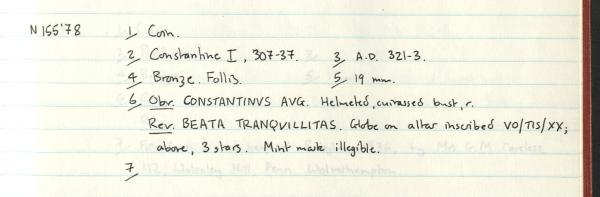 N155'78
1, Coin.
2, Constantine I, 307-37. 3, A.D. 321-3.
4, Bronze. Follis. 5, 19 mm.
6, Obv. CONSTANTINVS AVG. Helmeted, cuirassed bust, r.
Rev. BEATA TRANQVILLITAS. Globe on altar inscribed VO/TIS/XX;
above, 3 stars. Mint mark illegible.
7,